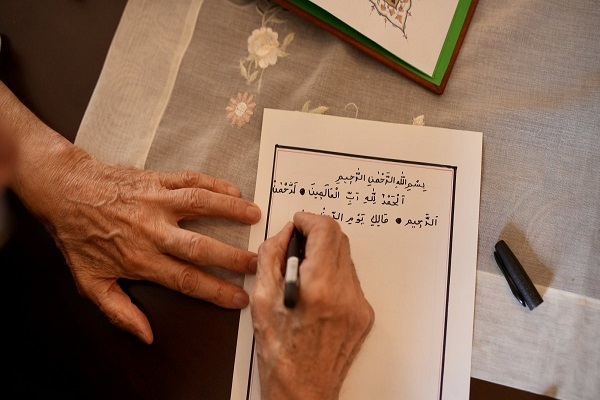 بِسْمِ اللهِ الرَّحْمٰنِ الرَّحِيمِ
اَلْحَمْدُ لِلّٰهِ رَبِّ الْعَالَمِينَ ● لَرَّحْمٰنِ
الرَّحِيمِ ● مَالِكِ يَوْمِ